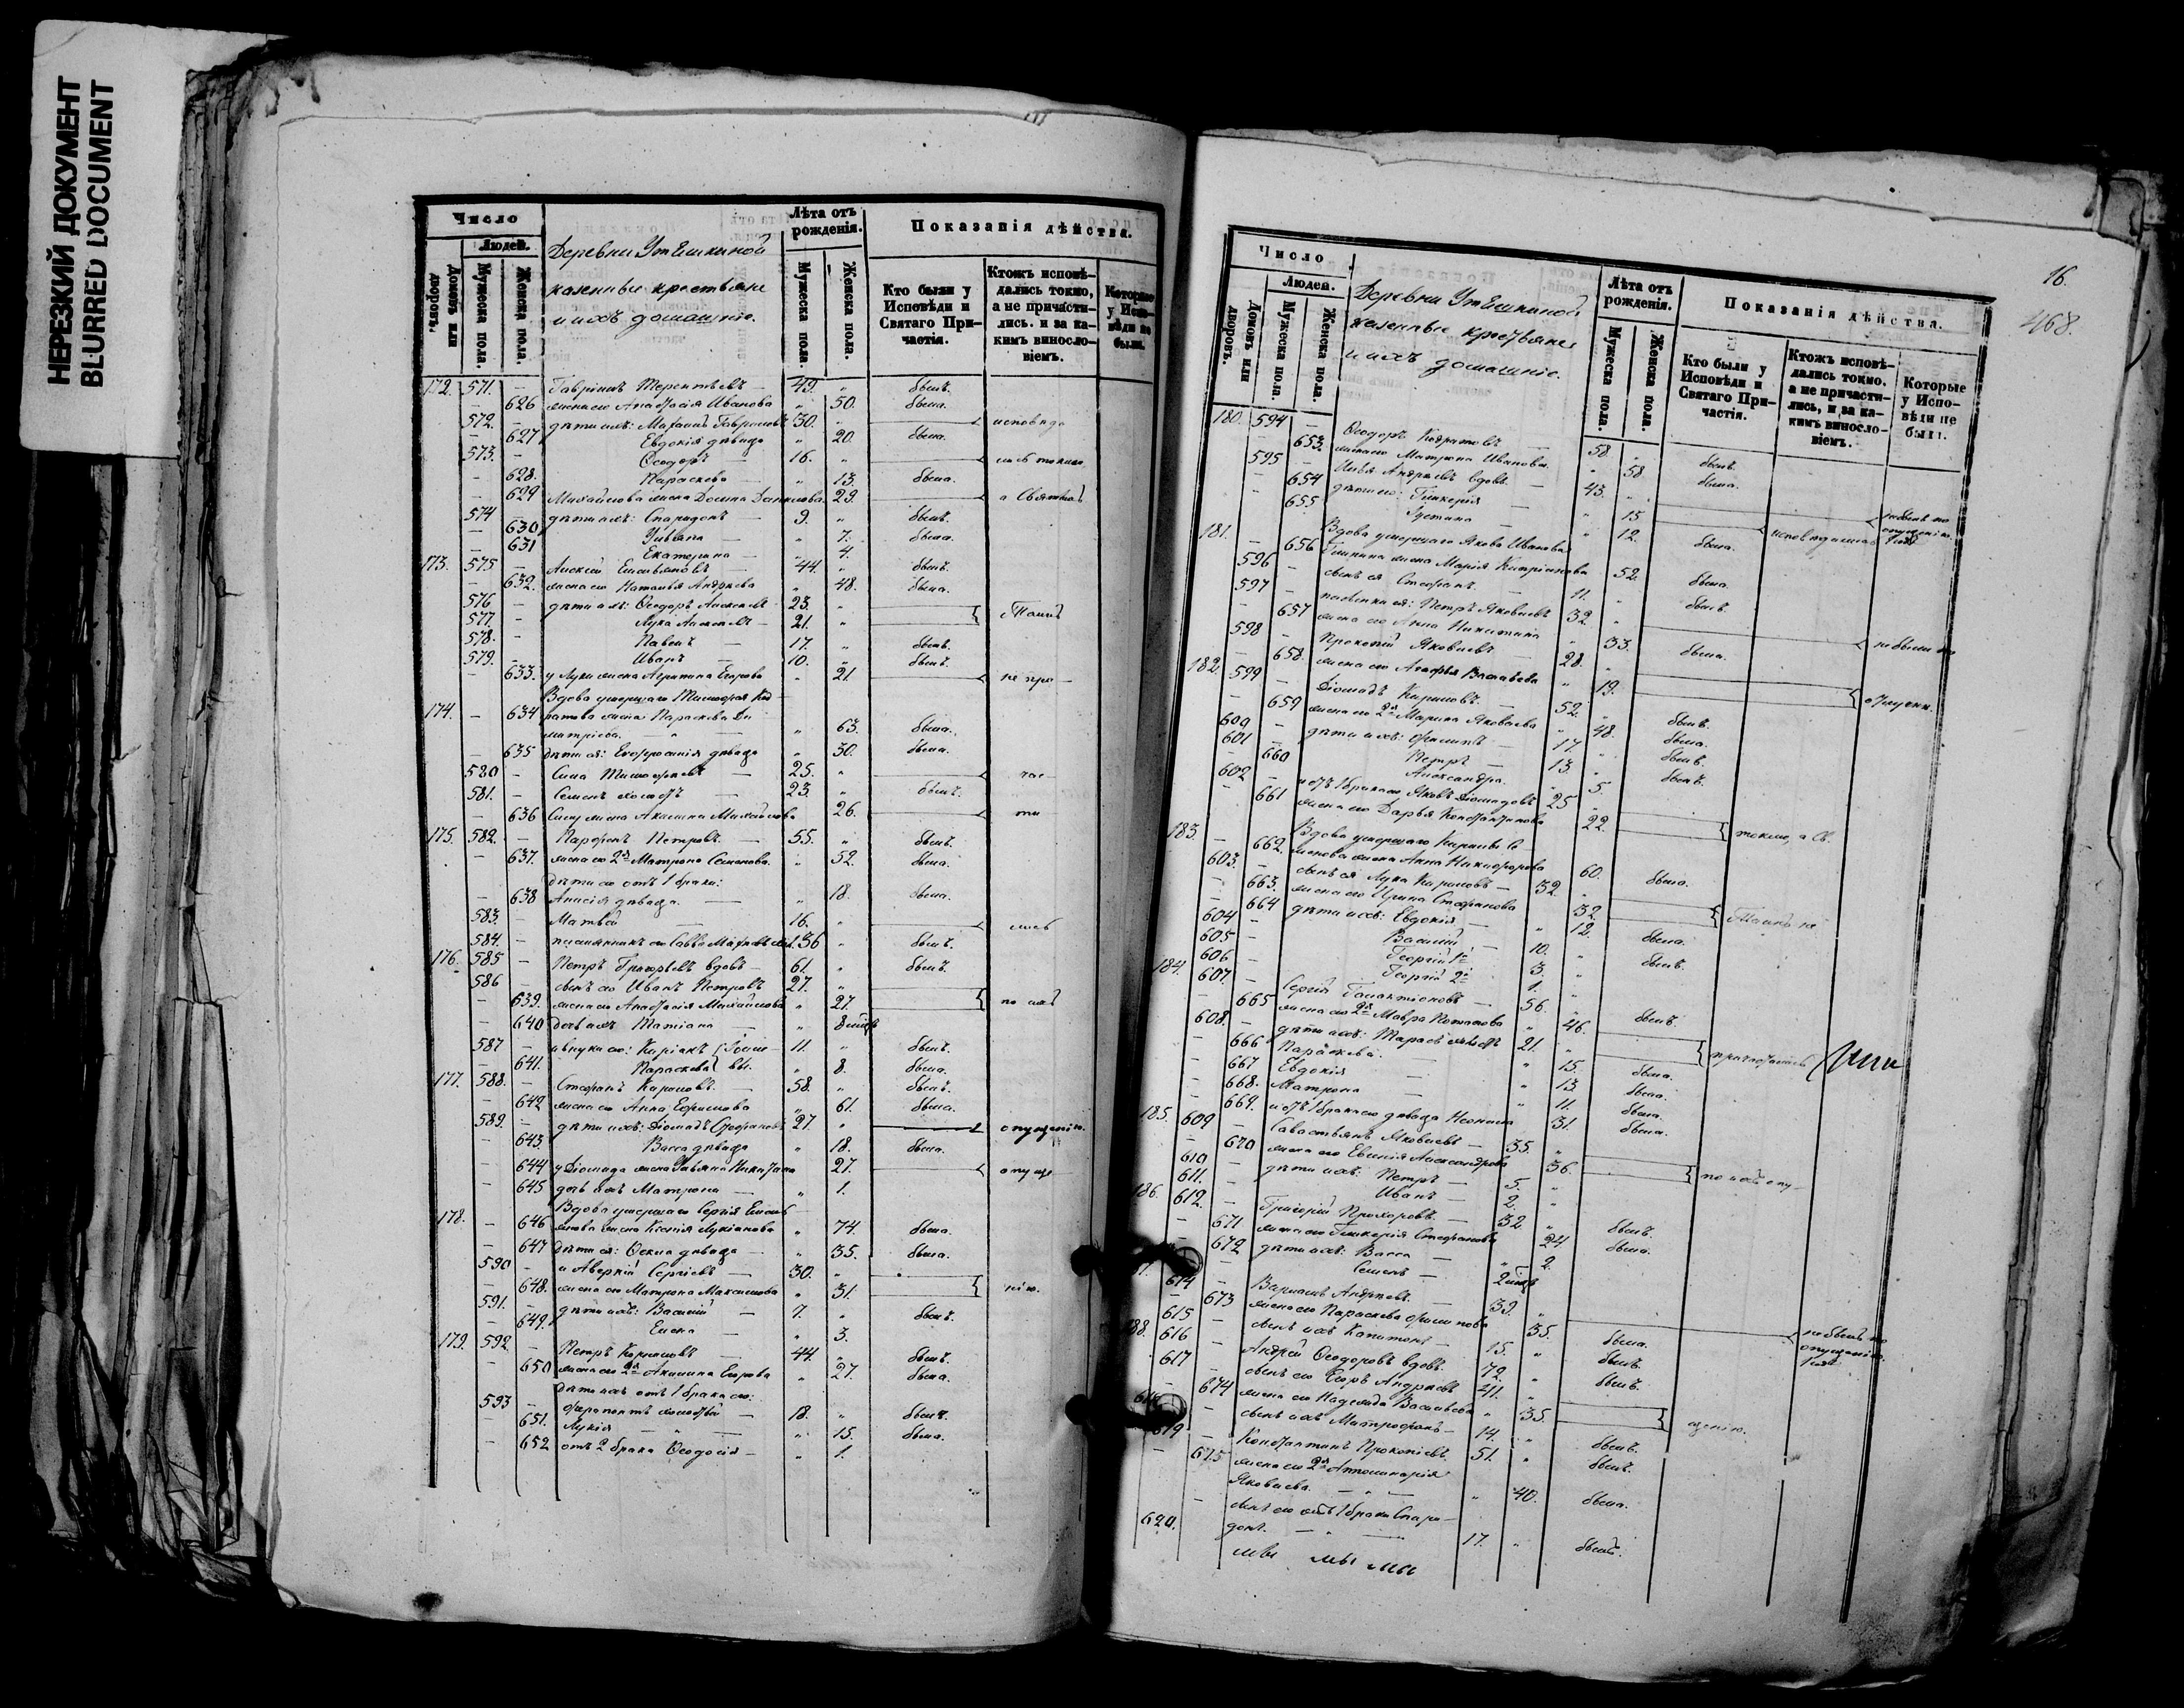 НЕРЕЗКИЙ ДОКУМЕНТ
BLURRED DOCUMENT
Число
Людей.
Домовъ или дворовъ.
Мужеска пола.
Женска пола.
Деревни Утѣшкиной
казенные крестьяне
и ихъ домашніе.
Лѣта отъ рожденія.
Мужеска пола.
Женска пола.
Показанія дѣйства.
Кто были у Исповѣди и Святаго Причастія.
Ктожъ исповѣдались токмо, а не причастились. и за какимъ винословіемъ.
Которые у Исповѣди не были.
172. 571 - Гавріилъ Терентьевъ — 49. „ былъ.
- 626 жена его Анастасія Иванова „ 50. была.
572. - дѣти ихъ: Михаилъ Гавриловъ 30. „ исповѣда
- 627 Евдокія дѣвица „ 20. была.
573. - Ѳеодоръ — 16. „ лись токмо
- 628. Параскева — „ 13. была.
- 629 Михайлова жена Домна Данилова 29. а Святыхъ
574 - дѣти ихъ: Спиридонъ — 9. „ былъ.
- 630 Ульяна — „ 7. была.
- 631 Екатерина — „ 4.
173. 575 - Алексѣй Емельяновъ — 44. „ былъ.
- 632. жена его Наталья Андреева „ 48. была.
576 - дѣти ихъ: Ѳеодоръ Алексѣевъ 23. „
577. - Лука Алексѣевъ — 21. „ Таинъ
578. - Павелъ — 17. „ былъ.
579. - Иванъ — 10. „ былъ.
- 633. у Луки жена Агрипина Егорова „ 21. не при
Вдова умершаго Тимофея Код
174. - 634 ратова жена Параскева Ди
митріева. — „ — „ 63. была.
- 635 дѣти ея: Евфросинія дѣвица „ 30. была.
580 - Сила Тимофеевъ — 25. „ час
581. - Семенъ холостъ — 23. „ былъ.
- 636 Силы жена Акилина Михайлова 26. ти
175. 582. - Парфенъ Петровъ. — 55. „ былъ.
- 637. жена его 2я Матрона Семенова. „ 52. была.
дѣти его отъ 1 брака:
- 638 Анисія дѣвица. — „ 18. была.
583. - Матвей — 16. „ лись
584. - племянникъ его Савва 36 „ былъ.
176. 585 - Петръ Григорьевъ вдовъ — 61. „ былъ.
586 - сынъ его Иванъ Петровъ 27. „
- 639. жена его Анастасія Михайлова „ 27. по ихъ
- 640 дочь ихъ Татіана — „
587 - внуки его: Киріакъ 11. „ былъ.
- 641. Параскева „ 8. была.
177. 588. - Стефанъ Кириловъ. — 58. „ былъ.
- 642 жена его Анна Ефимова „ 61. была.
589. - дѣти ихъ: Діомидъ Стефановъ 27. „ опущенію.
- 643. Васса дѣвица „ 18. была.
- 644 у Діомида жена Ульяна Никитина 27. опуще
- 645 дочь ихъ Матрона — „ 1.
Вдова умершаго Сергія Емель
178. - 646 янова жена Ксенія Лукіанова „ 74. была.
- 647 дѣти ея: Ѳекла дѣвица — „ 35. была.
590 - и Аверкій Сергіевъ — 30. „
- 648. жена его Матрона Максимова „ 31. нію.
591. - дѣти ихъ: Василій — 7. „ былъ.
- 649. Елена — „ 3.
179. 592. - Петръ Корниловъ — 44. „ былъ.
- 650 жена его 2я Акилина Егорова „ 27. была.
дѣти ихъ отъ 1 брака его:
593 - Ферапонтъ холостый — 18. „ былъ.
- 651. Лукія — „ — „ 15. была.
- 652 отъ 2 брака Ѳеодосія — „ 1.
16.
468.
Число
Людей.
Домовъ или дворовъ.
Мужеска пола.
Женска пола.
Деревни Утѣшкиной
казенные крестьяне
и ихъ домашніе.
Лѣта отъ рожденія.
Мужеска пола.
Женска пола.
Показанія дѣйства.
Кто были у Исповѣди и Святаго Причастія.
Ктожъ исповѣдались токмо. а не причастились, и за какимъ винословіемъ.
Которые у Исповѣди не были.
180. 594 - Ѳеодоръ Кодратовъ — 58. „ былъ.
- 653. жена его Матрона Иванова. „ 58. была.
595 - Илья Андреевъ вдовъ. — 43. „ не былъ по опущенію.
- 654 дѣти его: Гликерія — „ 15. исповѣдалась
- 655. Іустина — „ 12. была.
181. Вдова умершаго Якова Иванова
- 656 Глинина жена Марія Кипріянова 52. была.
596 - сынъ ея Стефанъ. — 11. „ былъ.
597 - пасынки ея: Петръ Яковлевъ 32. „ не были по
- 657 жена его Анна Никитина „ 33. была.
598 - Прокопій Яковлевъ — 28. „
- 658. жена его Агафья Васильева „ 19. опущен.
182. 599 - Діомидъ Кириловъ. — 52. „ былъ.
- 659 жена его 2я Марина Яковлева „ 48. была.
600 - дѣти ихъ: Филипъ — 17. „ былъ.
601 - Петръ — 13. „ былъ.
- 660 Александра. — „ 5.
602 - и отъ 1 брака его Яковъ Діомидовъ 25 „
- 661 жена его Дарья Константинова 22. токмо, а Св.
183. Вдова умершаго Кирилы Се
- 662. менова жена Анна Никифорова 60. была.
603. - сынъ ея Лука Кириловъ — 32. „
- 663. жена его Ирина Стефанова 32. Таинъ не
- 664 дѣти ихъ: Евдокія — „ 12. была.
604 - Василій — 10. „ былъ.
605 - Георгій 1й 3. „
606 - Георгій 2й 1. „
184. 607. - Сергій Галактіоновъ — 56. „ былъ.
- 665 жена его 2я Мавра Потапова „ 46.
608. - дѣти ихъ: Тарасъ холостъ 21. „ причастились
- 666 Параскева. — „ 15. была.
- 667 Евдокія — „ 13 была.
- 668. Матрона „ 11. была.
- 669. и отъ 1 брака его дѣвица Неонила 31. была.
185. 609 - Савастьянъ Яковлевъ — 35. „
- 670 жена его Евгенія Александрова 36. по ихъ опу
610 - дѣти ихъ: Петръ — 5. „
611. - Иванъ — 2. „
186. 612. - Григорій Прохоровъ. — 32. „ былъ.
- 671 жена его Гликерія Стефанова 24. была.
- 672 дѣти ихъ: Васса — „ 2.
Семенъ —
614 - Варлаамъ Андреевъ. — 39. „ не былъ по опущенію.
- 673 жена его Параскева Филипова 35. была.
615 - сынъ ихъ Капитонъ — 15. „ былъ.
616 - Андрей Ѳеодоровъ вдовъ. 72. „ былъ.
617 - сынъ его Егоръ Андреевъ 41. „
- 674 жена его Надежда Васильева „ 35. щенію.
сынъ ихъ Митрофанъ — 14. „ былъ.
619 - Константинъ Прокопіевъ. 51. „ былъ.
- 675 жена его 2я Апполинарія
Яковлева. — „ — „ 40. была.
620. - сынъ его отъ 1 брака Спири
донъ. — „ — 17. „ былъ.